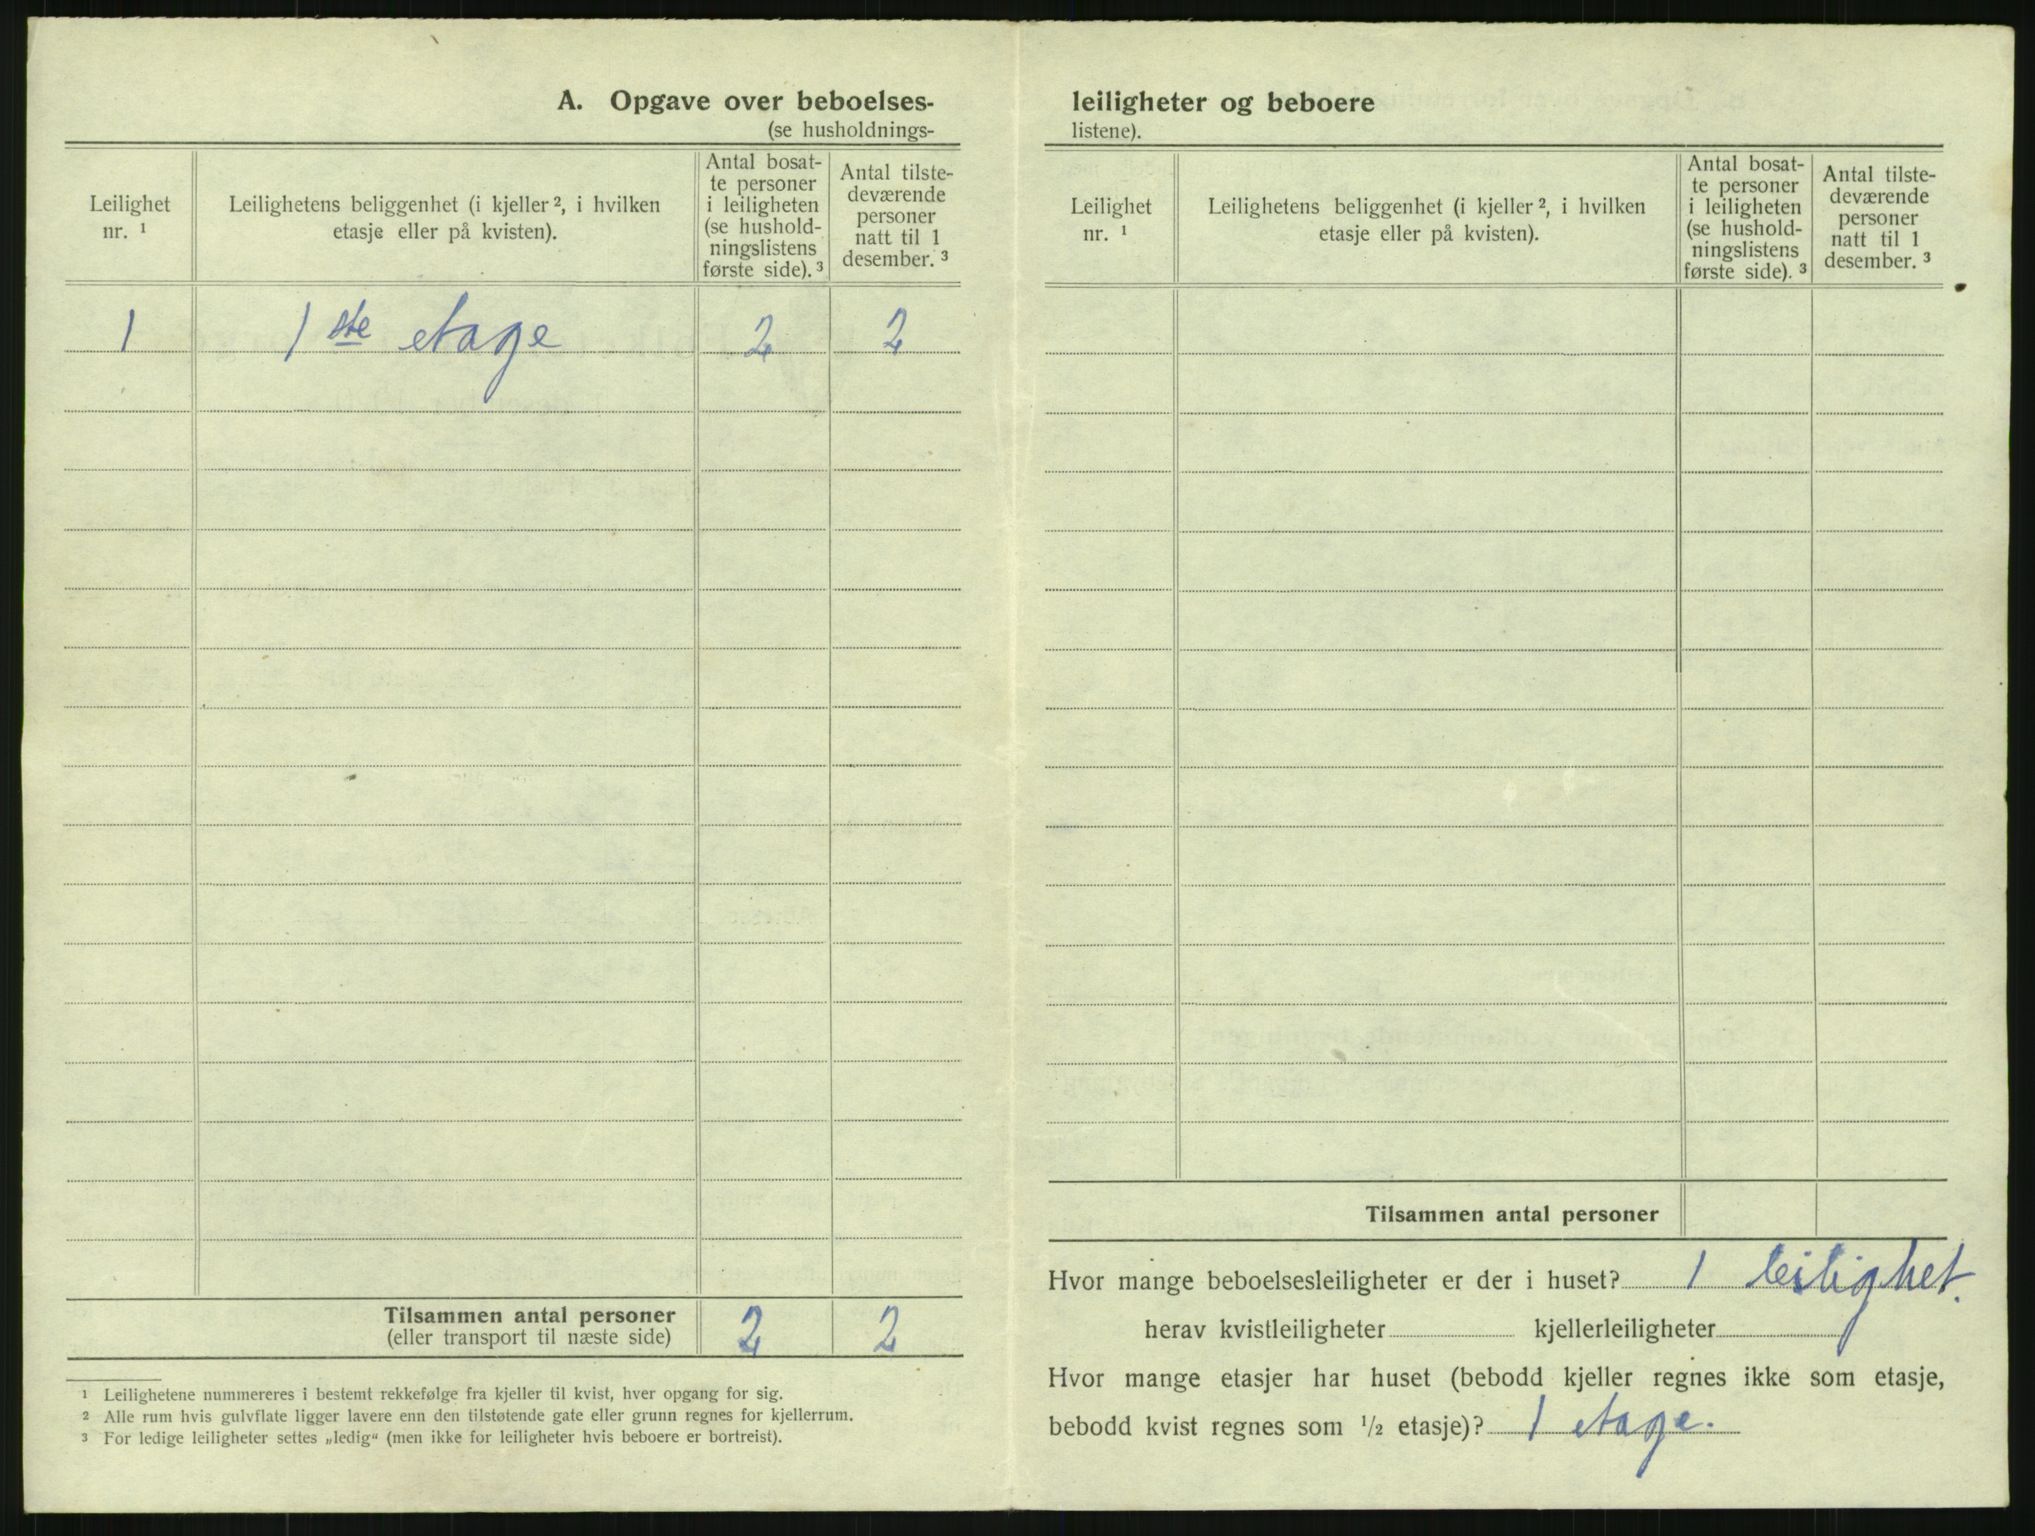 A. Opgave over beboelses-
(se husholdnings-
Leilighet
nr. ¹
Leilighetens beliggenhet (i kjeller ², i hvilken
etasje eller på kvisten).
Antal bosat-
te personer
i leiligheten
(se hushold-
ningslistens
første side). ³
Antal tilste-
deværende
personer
natt til 1
desember. ³
1 1ste etage 2 2
Tilsammen antal personer
(eller transport til næste side)
2 2
¹ Leilighetene nummereres i bestemt rekkefølge fra kjeller til kvist, hver opgang for sig.
² Alle rum hvis gulvflate ligger lavere enn den tilstøtende gate eller grunn regnes for kjellerrum.
³ For ledige leiligheter settes „ledig“ (men ikke for leiligheter hvis beboere er bortreist).
leiligheter og beboere
listene).
Leilighet
nr. ¹
Leilighetens beliggenhet (i kjeller ², i hvilken
etasje eller på kvisten).
Antal bosat-
te personer
i leiligheten
(se hushold-
ningslistens
første side). ³
Antal tilste-
deværende
personer
natt til 1
desember. ³
Tilsammen antal personer
Hvor mange beboelsesleiligheter er der i huset? 1 leilighet.
herav kvistleiligheter kjellerleiligheter
Hvor mange etasjer har huset (bebodd kjeller regnes ikke som etasje,
bebodd kvist regnes som ½ etasje)? 1 etage.